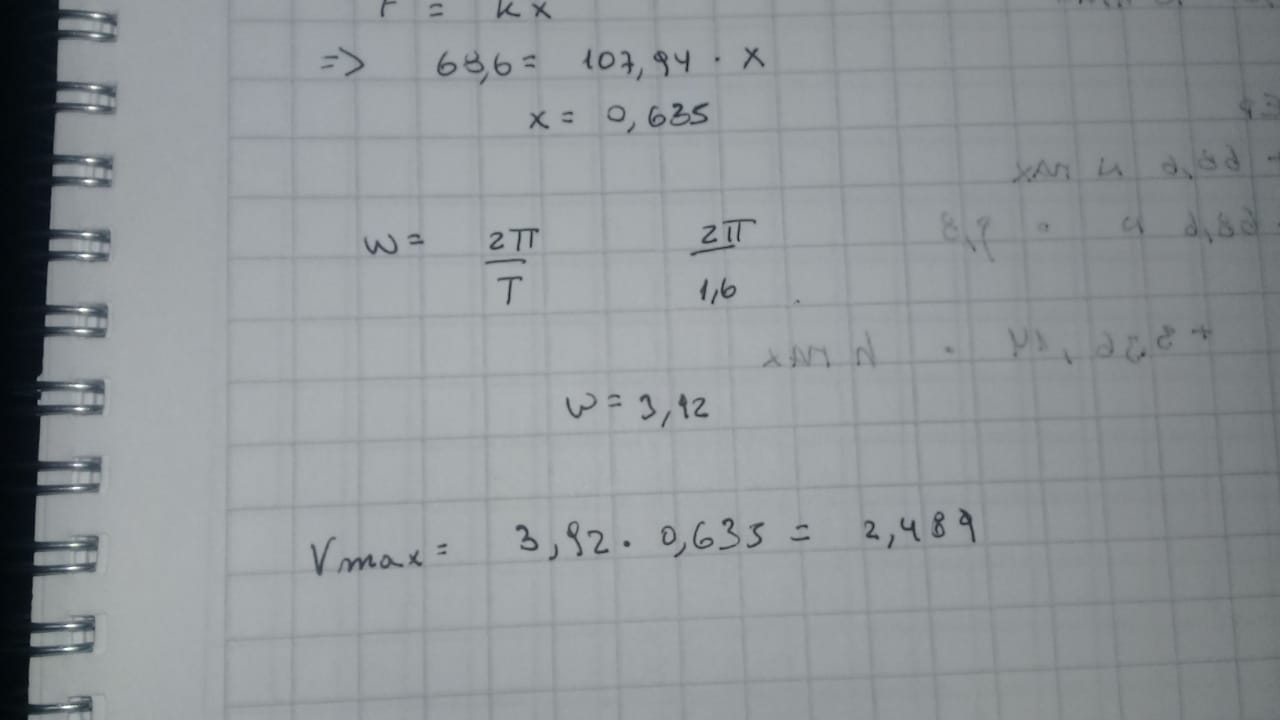 F = kx
=> 68,6 = 107,94 · x
x = 0,635
w = 2π/T 2π/1,6
w = 3,92
Vmax = 3,92 · 0,635 = 2,489